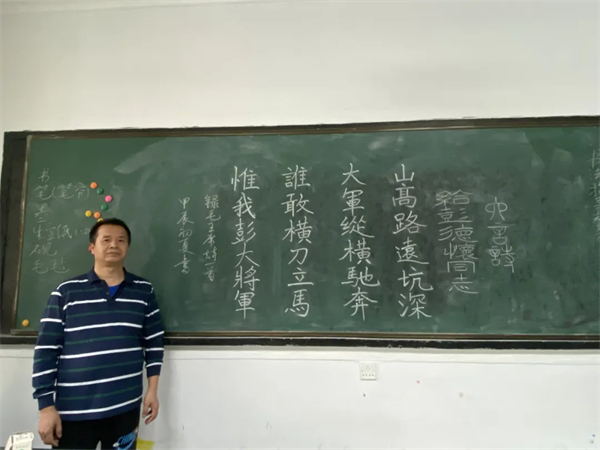 六言詩
給彭德懷同志
山高路遠坑深
大軍縱橫馳奔
誰敢橫刀立馬
惟我彭大將軍
錄毛主席詩一首
甲辰初夏
书
笔
墨
纸
砚